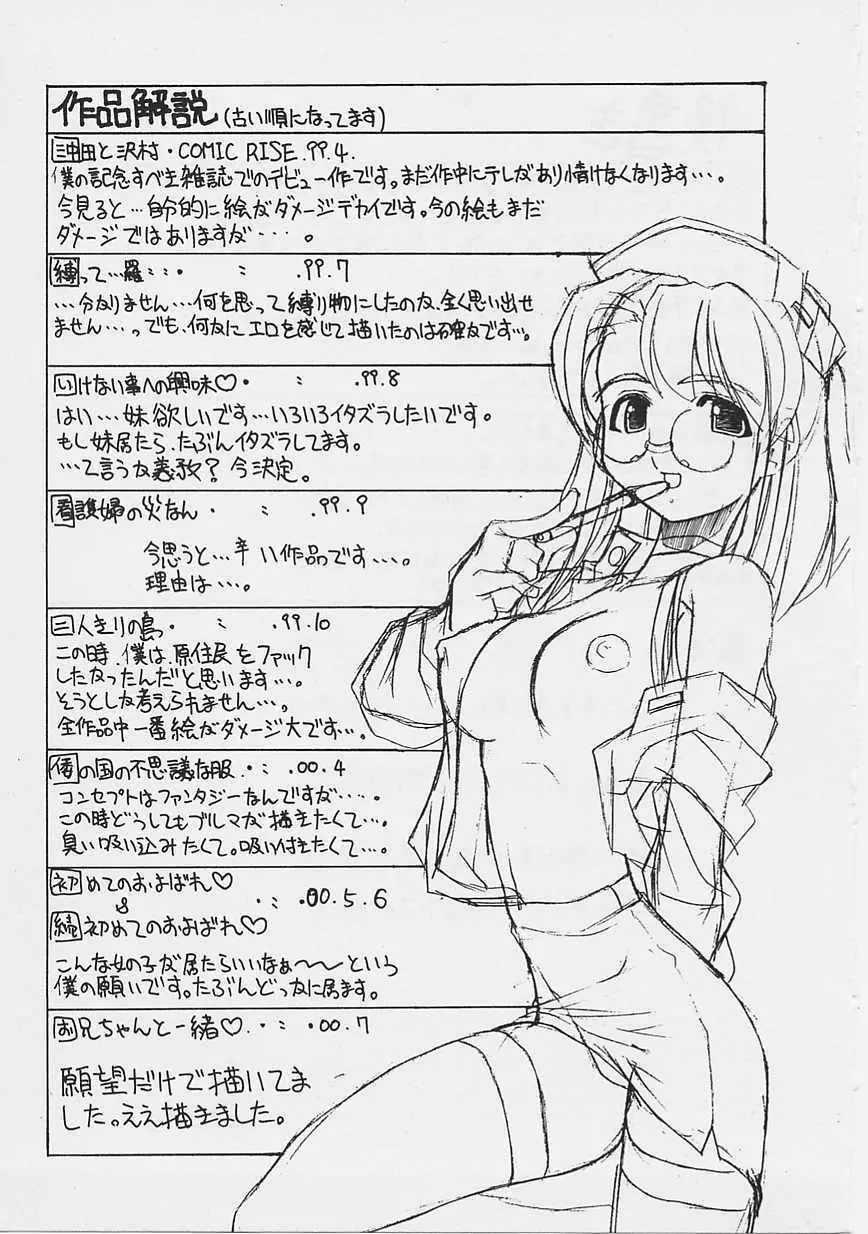 作品解説 (古い順になってます)
沖田と沢村・COMIC RISE.99.4.
僕の記念すべき雑誌でのデビュー作です。まだ作中にテレがあり情けなくなります…。
今見ると…自分的に絵がダメージデカイです。今の絵もまだ
ダメージではありますが…。
縛って…羅…・ : .99.7
…分かりません…何を思って縛り物にしたのか、全く思い出せ
ません…。でも、何かにエロを感じて描いたのは確かです…。
いけない事への興味♡・ : .99.8
はい…妹欲しいです…いろいろイタズラしたいです。
もし妹居たら、たぶんイタズラしてます。
…て言うか義務?今決定。
看護婦の災なん・ : .99.9
今思うと…辛い作品です…。
理由は…。
三人きりの島・ : .99.10
この時、僕は、原住民をファック
したかったんだと思います…。
そうとしか考えられません…。
全作品中一番絵がダメージ大です…。
倭の国の不思議な服・: .00.4
コンセプトはファンタジーなんですが…。
この時どうしてもブルマが描きたくて…。
臭い吸い込みたくて。吸い付きたくて…。
初めてのおよばれ♡
& ・: .00.5.6
続初めてのおよばれ♡
こんな女の子が居たらいいなぁ〜〜という
僕の願いです。たぶんどっかに居ます。
お兄ちゃんと一緒♡・・: .00.7
願望だけで描いてま
した。ええ描きました。